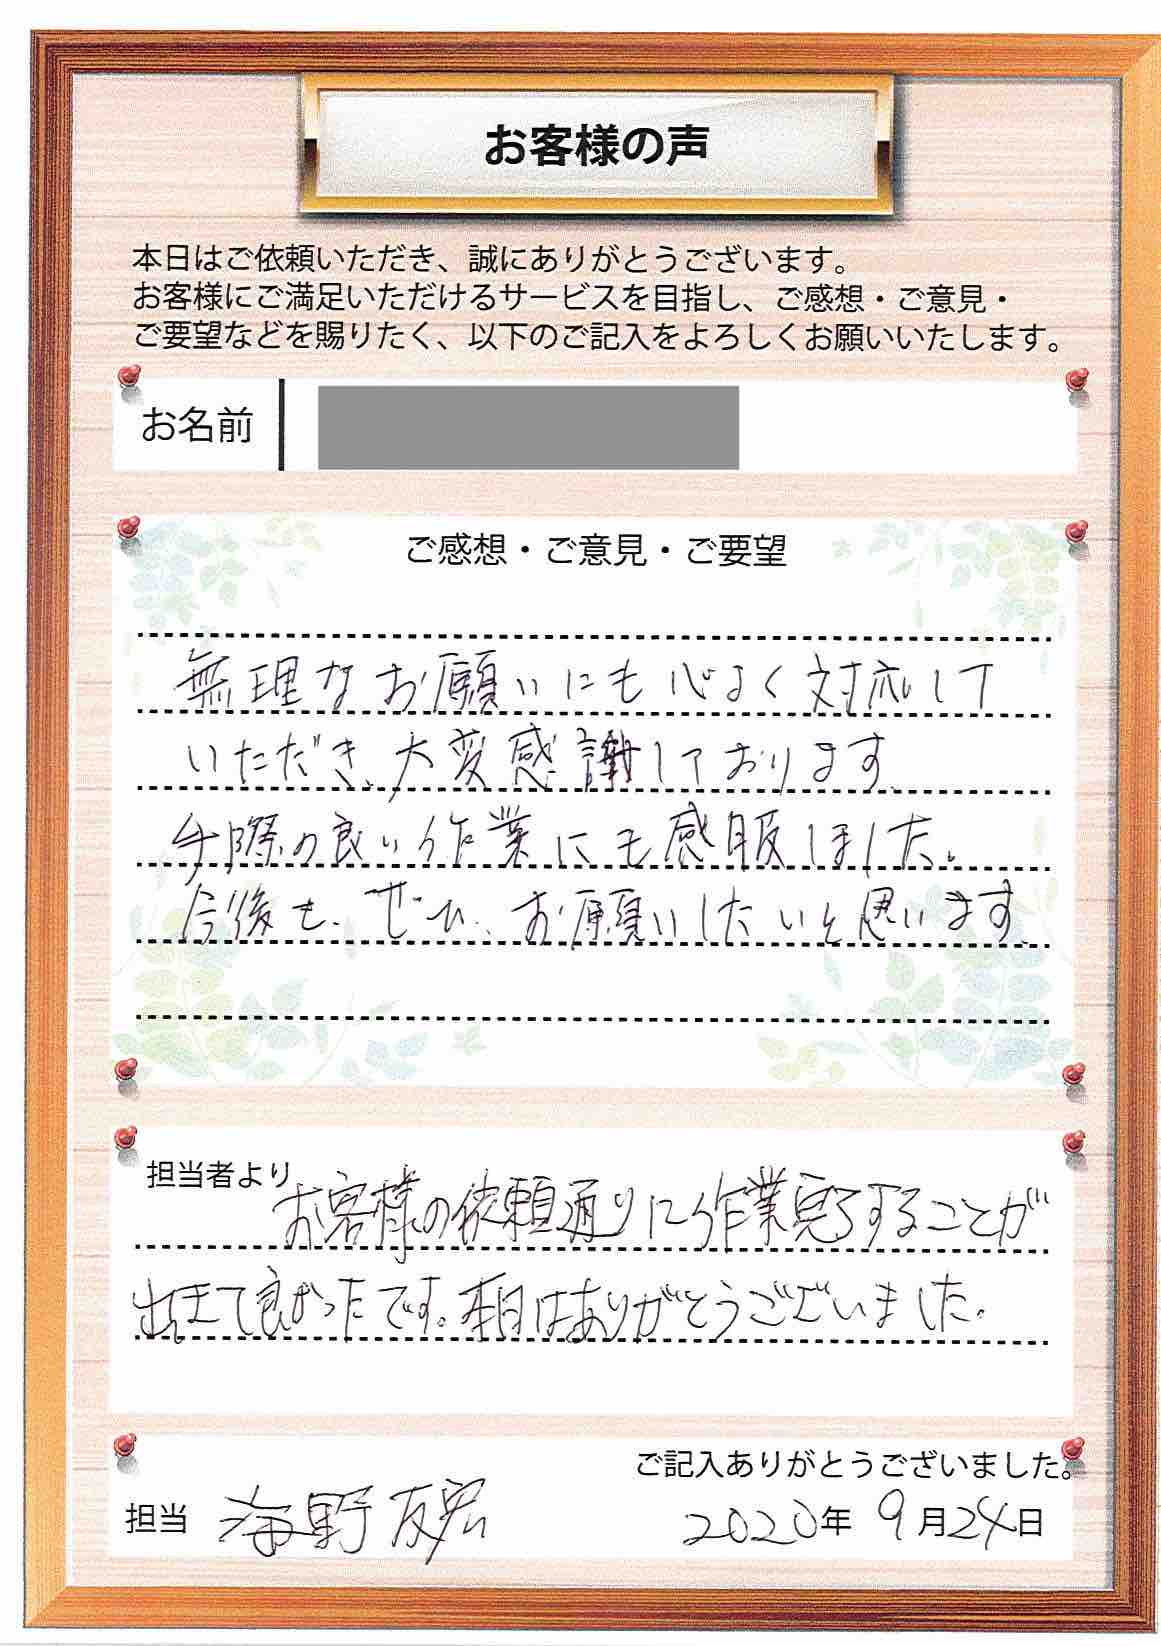 お客様の声
本日はご依頼いただき、誠にありがとうございます。
お客様にご満足いただけるサービスを目指し、ご感想・ご意見・
ご要望などを賜りたく、以下のご記入をよろしくお願いいたします。
お名前
ご感想・ご意見・ご要望
無理なお願いにも心よく対応して
いただき、大変感謝しております。
手際の良い作業にも感服しました。
今後も、ぜひ、お願いしたいと思います。
担当者より
お客様の依頼通りに作業完了することが
出きて良かったです。本日はありがとうございました。
ご記入ありがとうございました。
担当 海野 友宏
2020年 9月24日